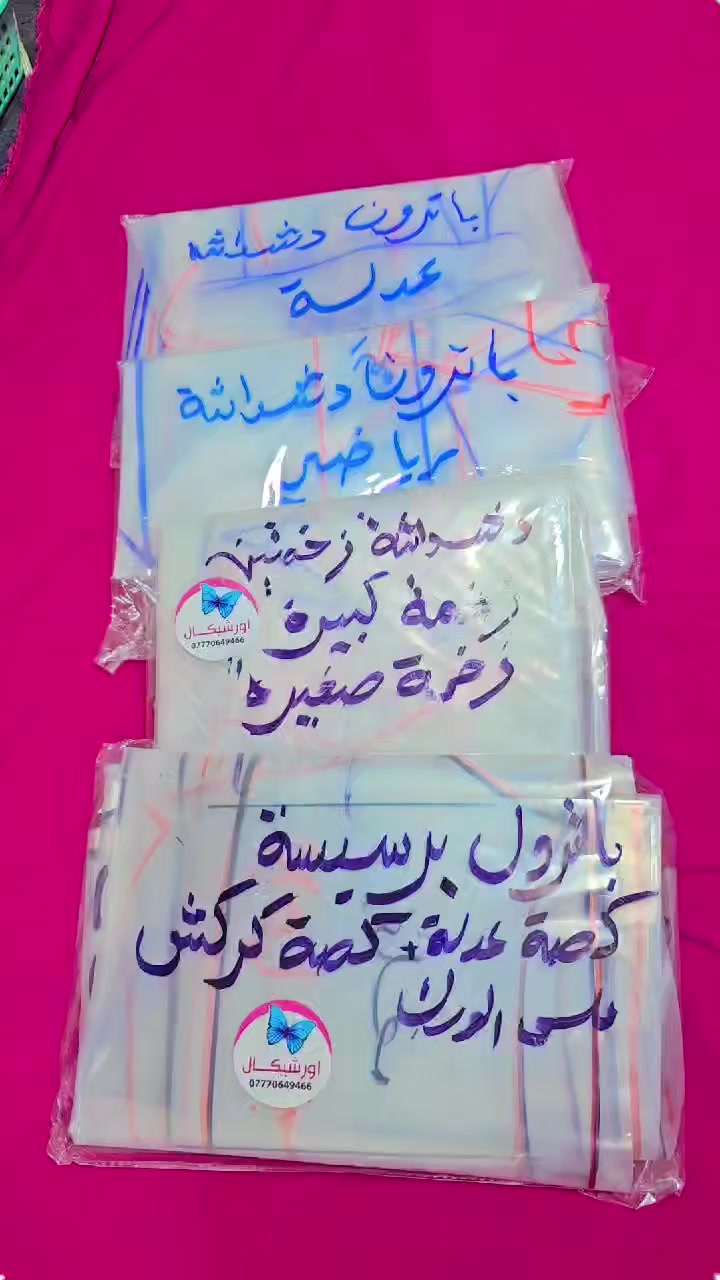 باترون دشداشه
عدلة
باترون دشداشة
رياضي
دشداشة زخمتين
زخمة كبيرة
زخمة صغيره
اورشيكال
07770649466
باترول برسيسة
كصة عدلة + كصة كركش
ملس الورك
اورشيكال
07770649466